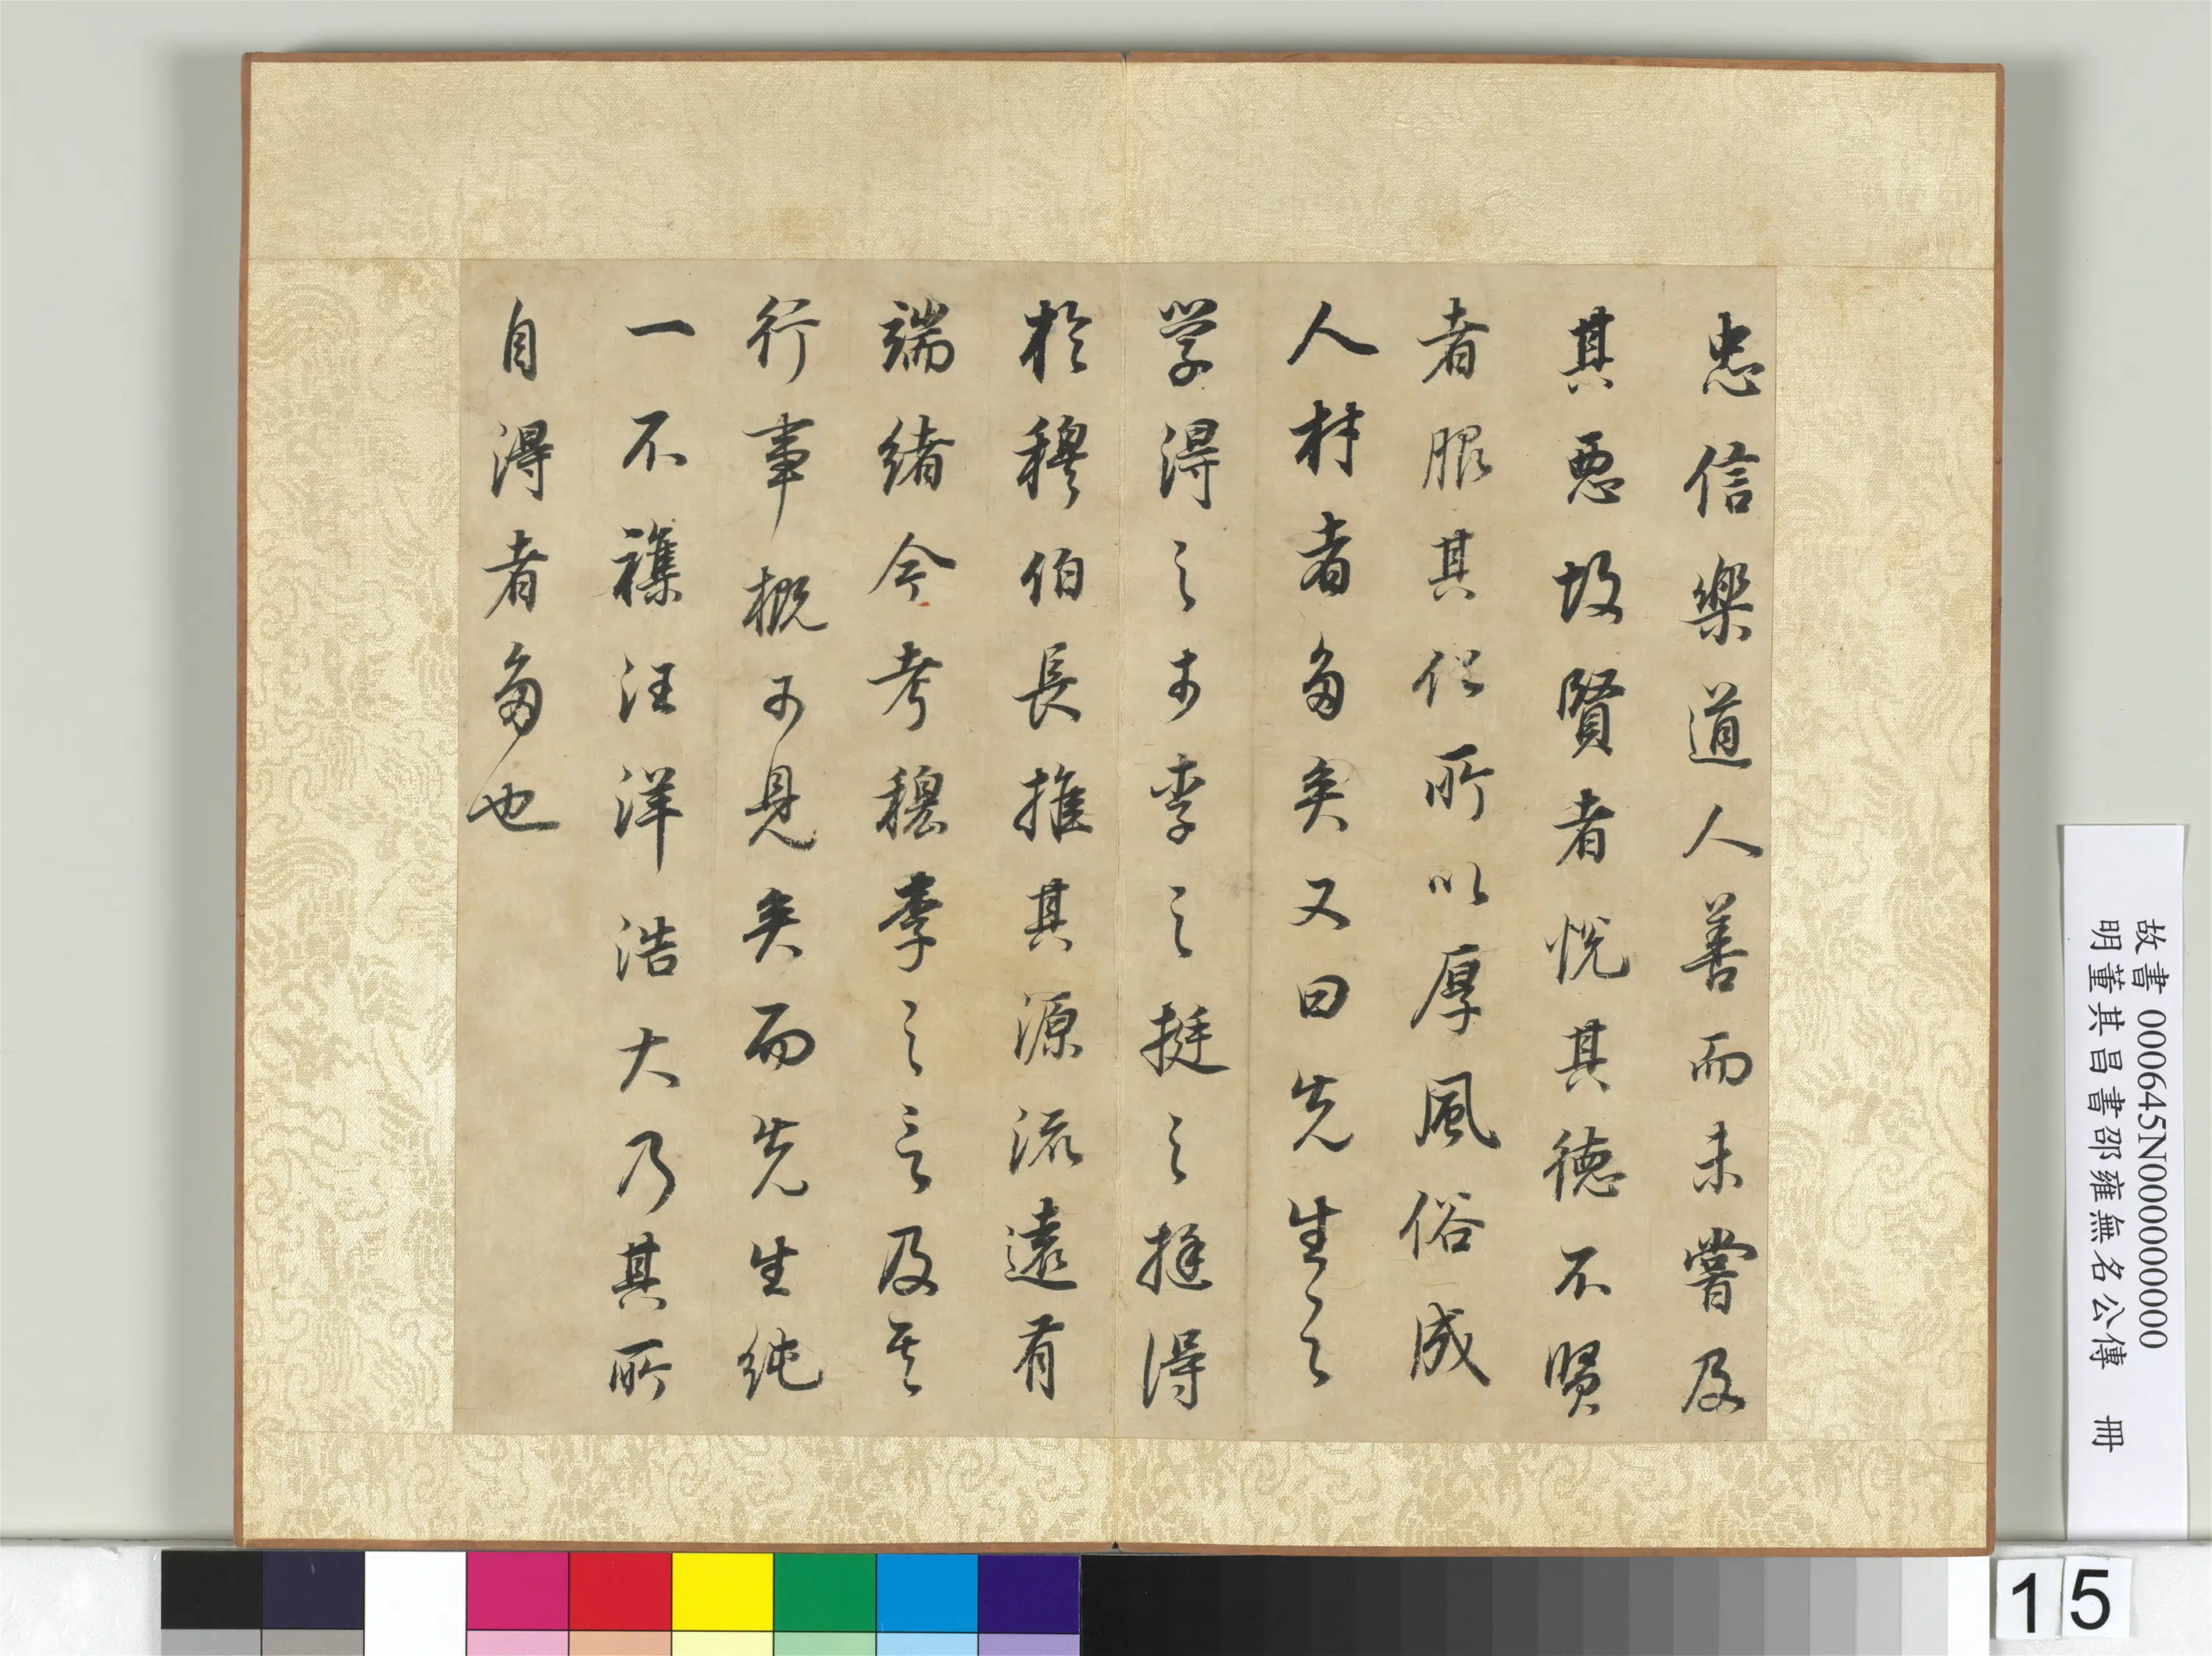 忠信樂道人善而未嘗及
其惡故賢者悅其德不賢
者服其化所以厚風俗成
人材者多矣又曰先生之
学得之於李之挺之挺得
於穆伯長推其源流遠有
端緒今考穆李之言及其
行事概可見矣而先生純
一不襍汪洋浩大乃其所
自得者多也
故書 000645N000000000
明董其昌書邵雍無名公傳 冊
15